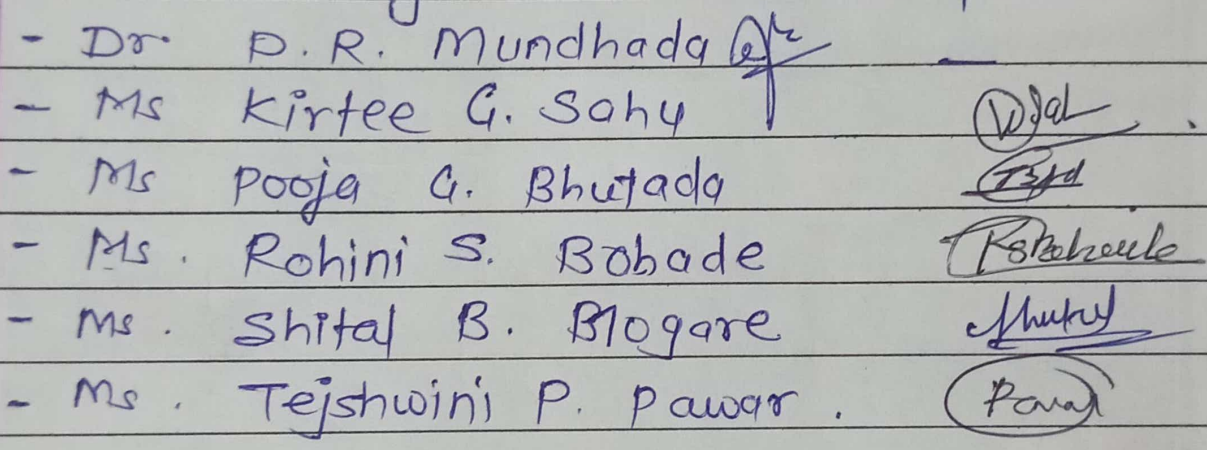 - Dr. D. R. Mundhada
- Ms Kirtee G. Sahu
- Ms Pooja G. Bhutada
- Ms. Rohini S. Bobade
- Ms. Shital B. Blogare
- Ms. Tejshwini P. Pawar.